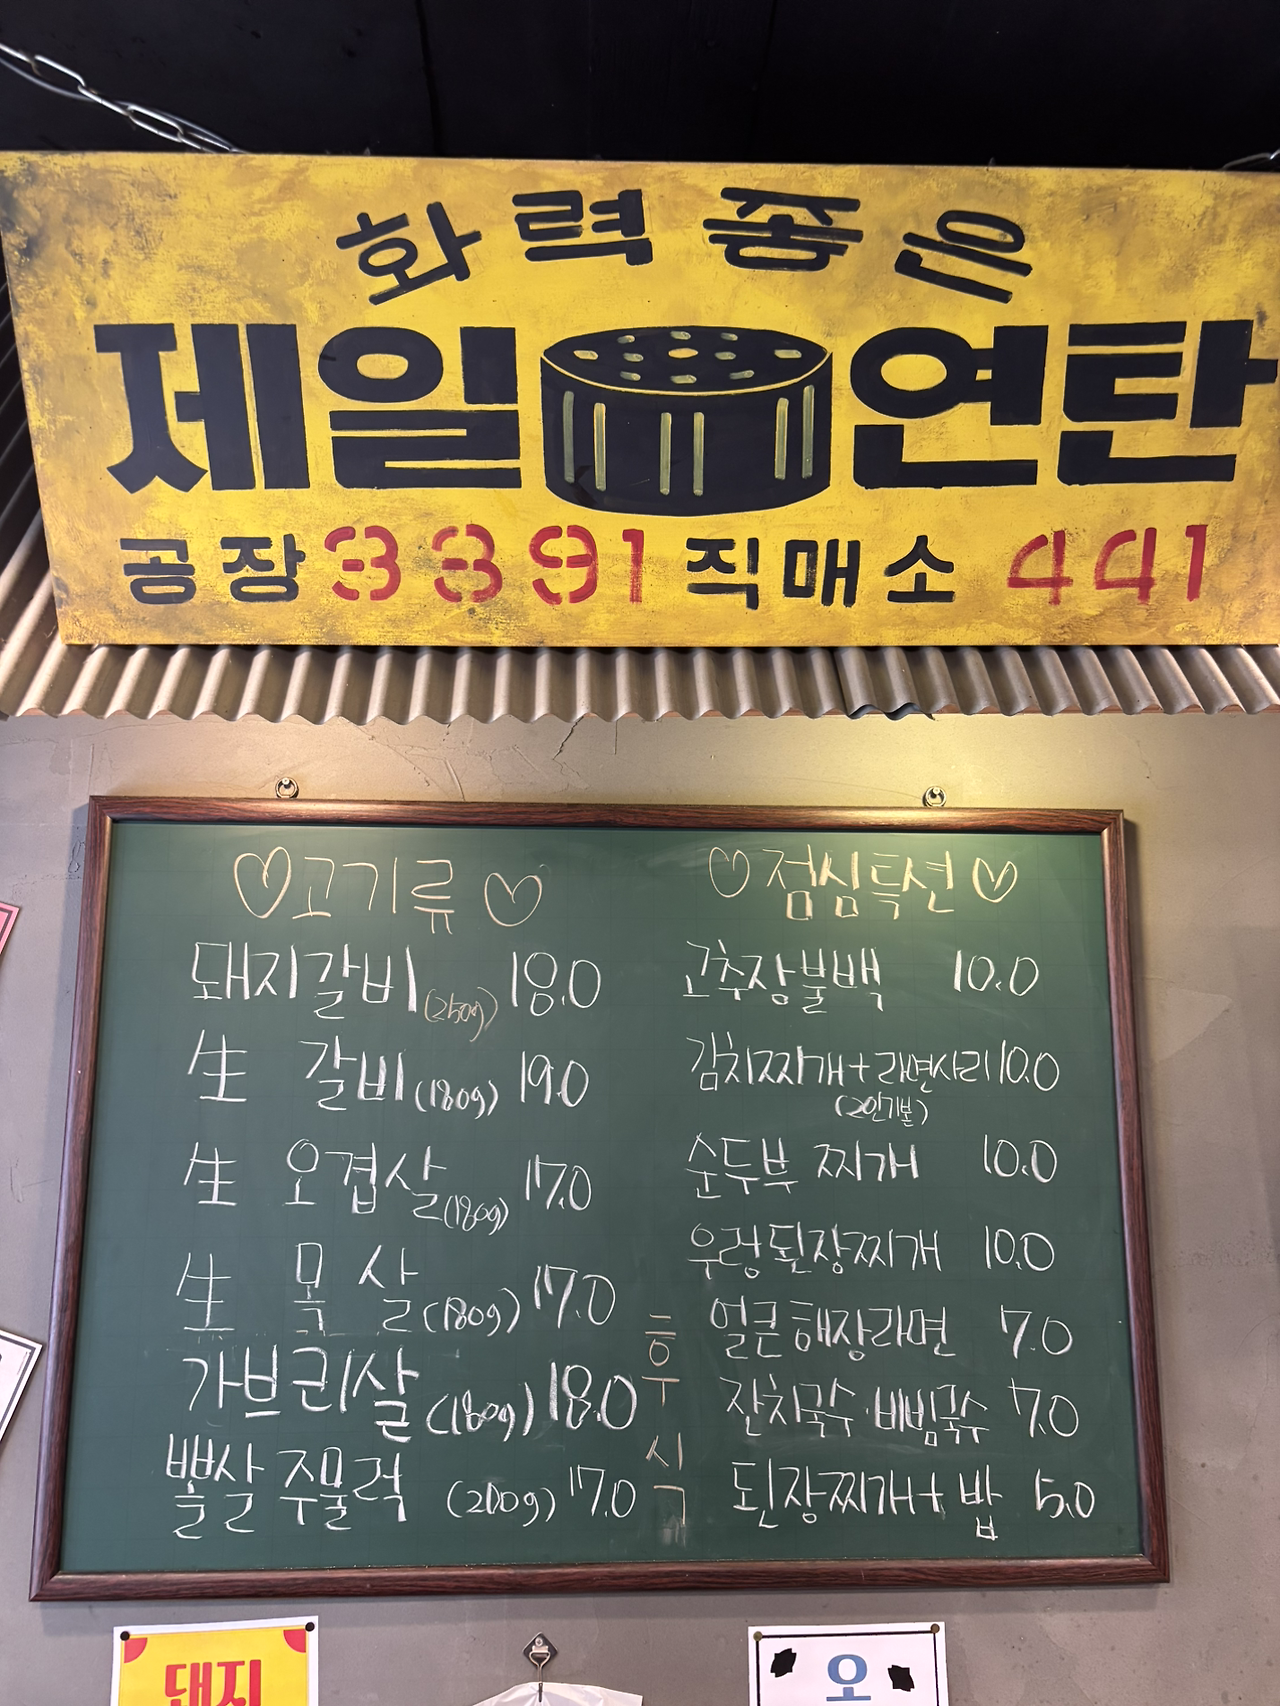 화력좋은
제일 연탄
공장 3391 직매소 441
♡고기류♡
돼지갈비(250g) 18.0
生 갈비(180g) 19.0
生 오겹살(180g) 17.0
生 목살(180g) 17.0
가브리살(180g) 18.0
뽈살 주물럭 (200g) 17.0
♡점심특선♡
고추장불백 10.0
김치찌개+라면사리 10.0
(2인기본)
순두부 찌개 10.0
우렁된장찌개 10.0
얼큰해장라면 7.0
잔치국수·비빔국수 7.0
된장찌개+밥 5.0
후식
돼지
오